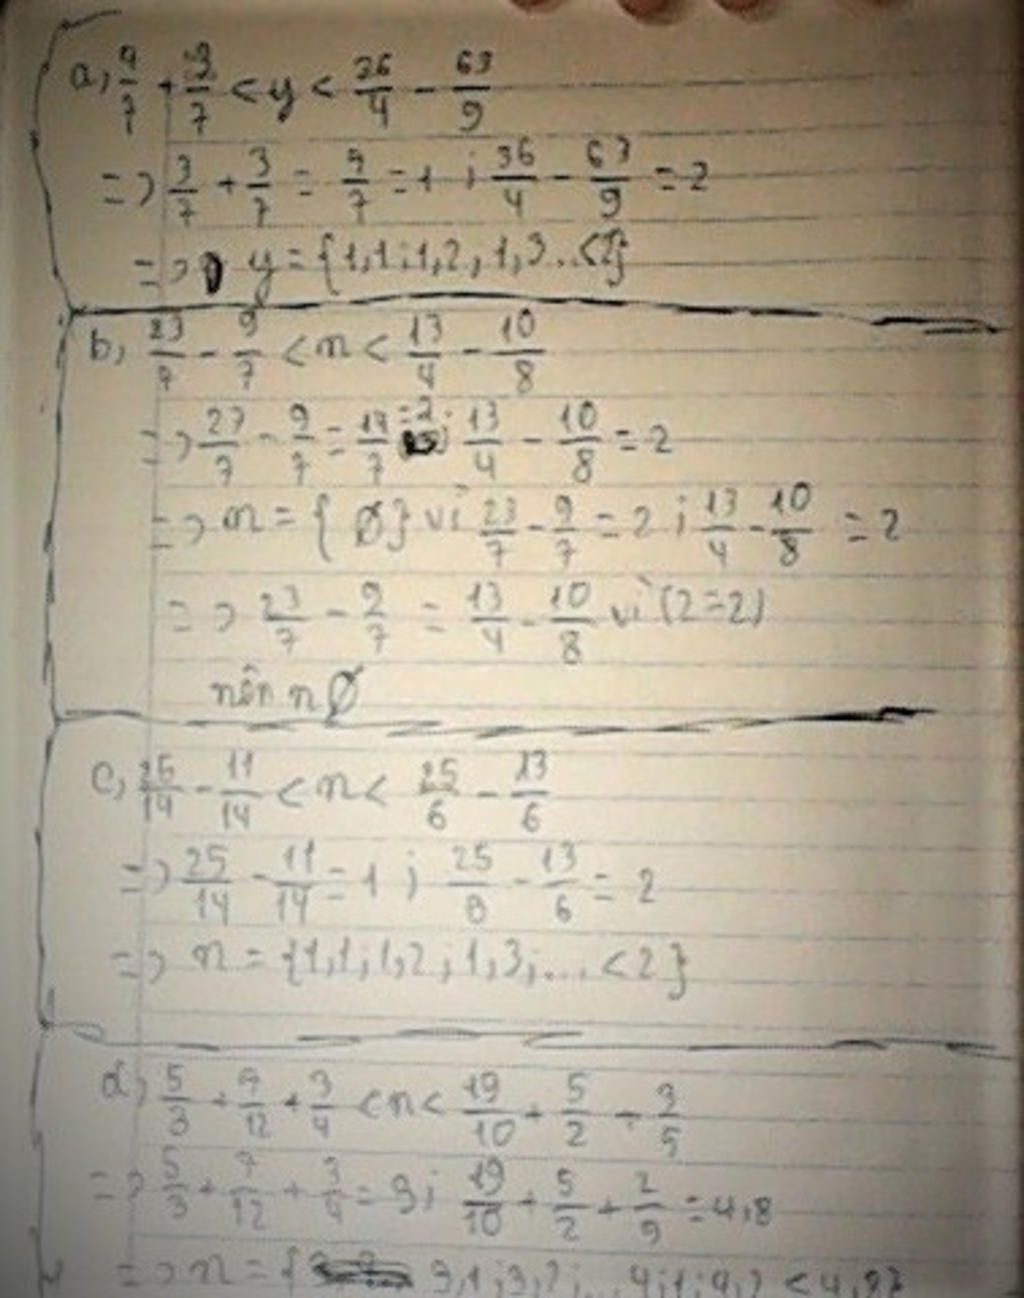 a, 4/7 + 3/7 < y < 36/4 - 63/9
=> 3/7 + 3/7 = 7/7 = 1 ; 36/4 - 63/9 = 2
=> y = {1,1;1,2, 1,3...<2}
b, 23/7 - 9/7 < n < 13/4 - 10/8
=> 23/7 - 9/7 = 14/7 = 2; 13/4 - 10/8 = 2
=> n = { Ø} vì 23/7 - 9/7 = 2 ; 13/4 - 10/8 = 2
=> 23/7 - 9/7 = 13/4 - 10/8 vì (2=2)
nên n Ø
c, 25/14 - 11/14 < n < 25/6 - 13/6
=> 25/14 - 11/14 = 1 ; 25/6 - 13/6 = 2
=> n = {1,1;1,2;1,3;... <2}
d, 5/3 + 7/12 + 3/4 < n < 19/10 + 5/2 + 2/5
=> 5/3 + 7/12 + 3/4 = 3; 19/10 + 5/2 + 2/5 = 4,8
=> n = { 3,1;3,2;... 4,1;4,2 <4,8}